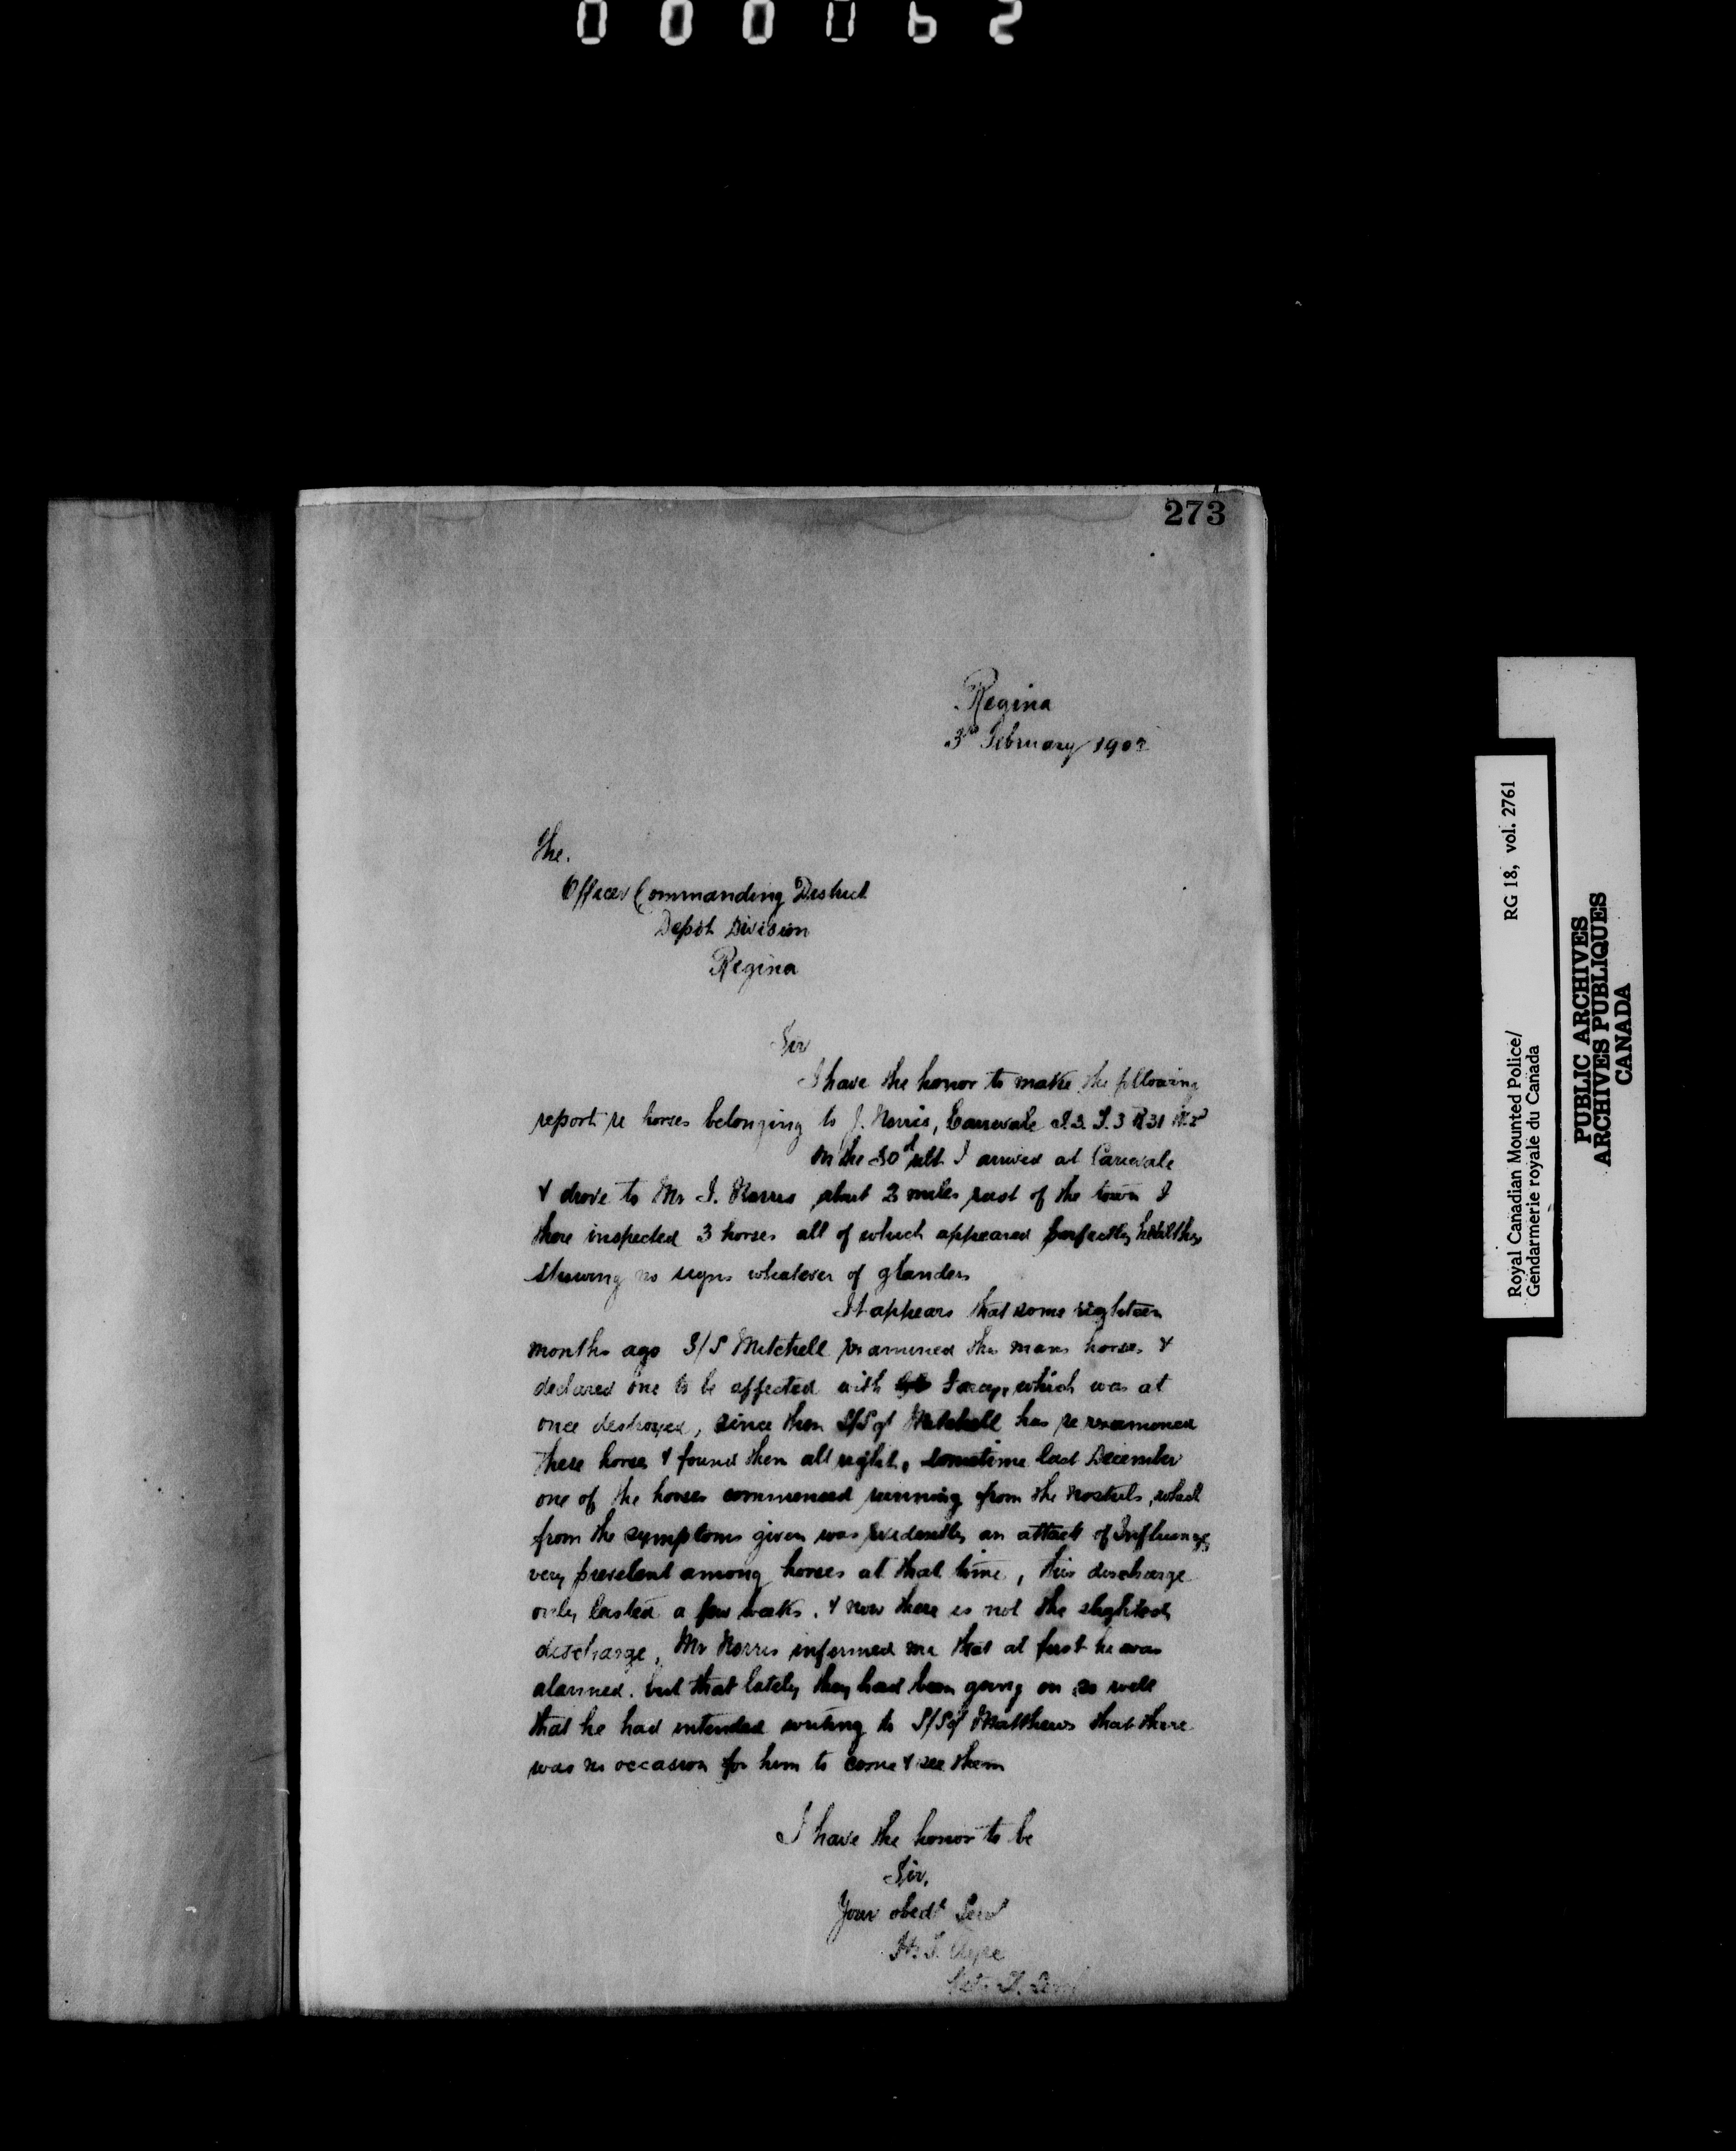 000062
273
Regina
3rd February 190
The.
Officer Commanding District
Depôt Division
Regina
Sir
I have the honor to make the following
report re horses belonging to J. Norris, Carievale T.3 R31
On the 30th ult I arrived at Carievale
& drove to Mr J. Norris about 2 miles east of the town I
there inspected 3 horses all of which appeared perfectly healthy
shewing no signs whatever of glanders
It appears that some eighteen
months ago S/S Mitchell examined this mans horses &
declared one to be affected with Farcy, which was at
once destroyed, since then S/Sgt Mitchell has re examined
these horses & found them all right, sometime last December
one of the horses commenced running from the nostrils, which
from the symptoms given was evidently an attack of Influenza
very prevelent among horses at that time, this discharge
only lasted a few weeks, & now there is not the slightest
discharge, Mr Norris informed me that at first he was
alarmed, but that lately they had been going on so well
that he had intended writing to S/Sgt Matthews that there
was no occasion for him to come & see them
I have the honor to be
Sir,
Your obedt Servt
Royal Canadian Mounted Police/ RG 18, vol. 2761
Gendarmerie royale du Canada
PUBLIC ARCHIVES
ARCHIVES PUBLIQUES
CANADA